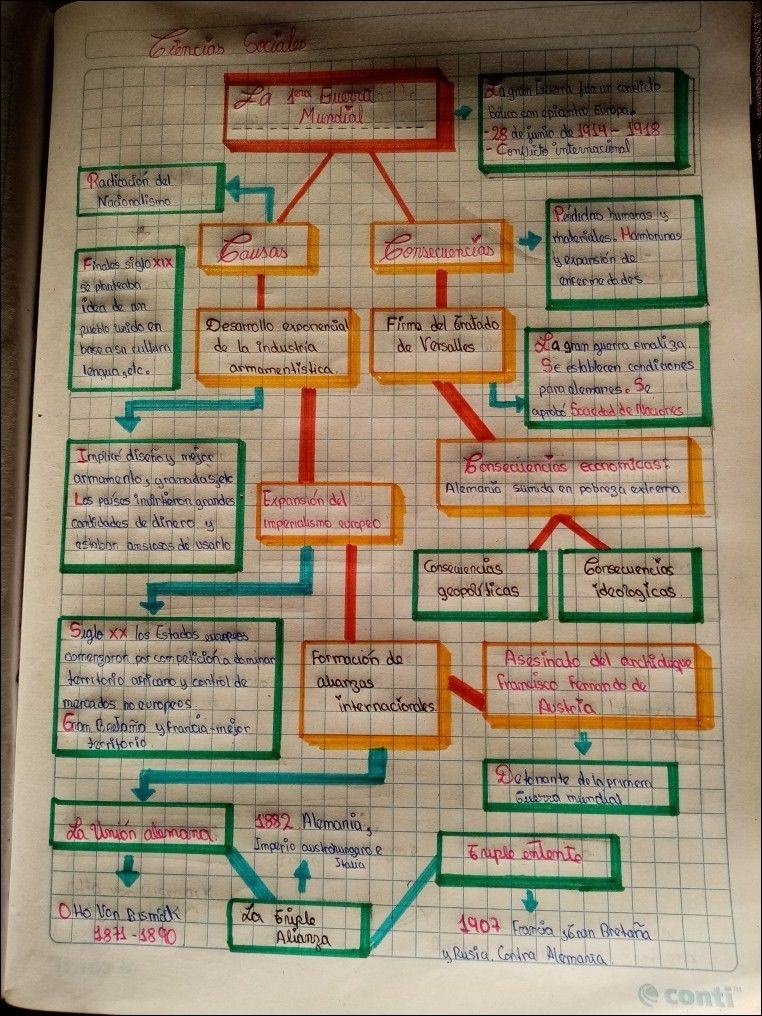 Ciencias Sociales
La 1era Guerra
Mundial
La gran Guerra fue un conflicto
Bélico con epicentro Europa.
- 28 de junio de 1914 - 1918
- Conflicto internacional
Radicación del
Nacionalismo
Causas
Consecuencias
Pérdidas humanas y
materiales. Hambrunas
y expansión de
enfermedades
Finales siglo XIX
se planteaba
idea de un
pueblo unido en
base a su cultura
lengua, etc.
Desarrollo exponencial
de la industria
armamentistica.
Firma del tratado
de Versalles
La gran guerra finaliza.
Se establecen condiciones
para alemanes. Se
aprobó Sociedad de Naciones
Implicó diseño y mejor
armamento, granadas, etc
Los países invirtieron grandes
cantidades de dinero y
estaban ansiosos de usarlo
Expansión del
imperialismo europeo
Consecuencias economicas:
Alemania sumida en pobreza extrema
Consecuencias
geopolíticas
Consecuencias
ideologicas.
Siglo XX los Estados europeos
comenzaron por competición a dominar
territorio africano y control de
mercados no europeos.
Gran Bretaña y Francia - mejor
territorio.
Formación de
alianzas
internacionales.
Asesinato del archiduque
Francisco Fernando de
Austria
Detonante de la primera
Guerra mundial
La Unión alemana.
1882 Alemania,
Imperio austrohungaro e
Italia
Triple entente
Otto Von Bismark
1871 - 1890
La triple
Alianza
1907 Francia y Gran Bretaña
y Rusia. Contra Alemania
conti